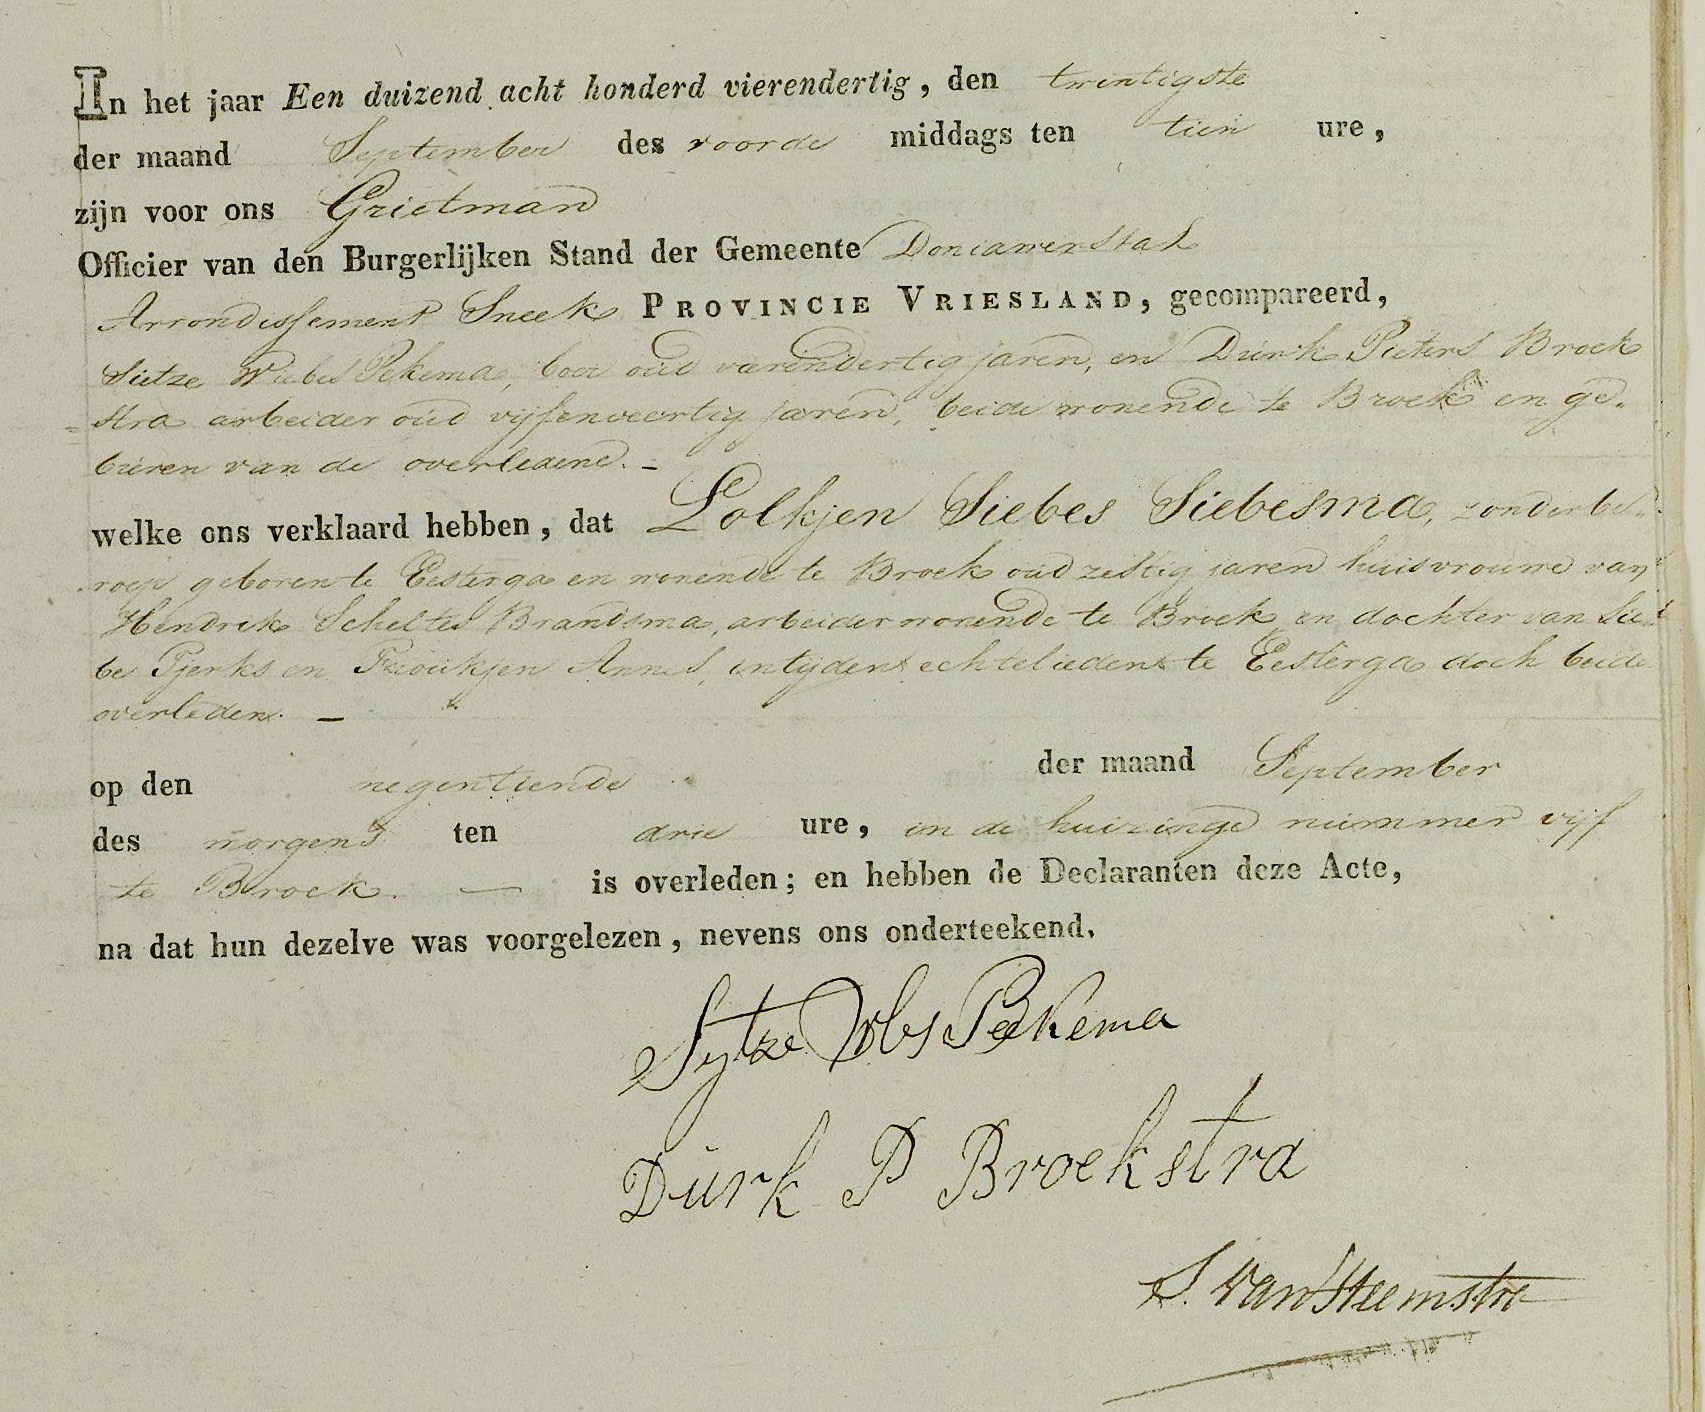 In het jaar Een duizend acht honderd vierendertig, den twintigste
der maand September des voorde middags ten tien ure,
zijn voor ons Grietman
Officier van den Burgerlijken Stand der Gemeente Doniawerstal
Arrondissement Sneek PROVINCIE VRIESLAND, gecompareerd,
Sietze Wiebes Pekema, boer oud vierendertig jaren, en Durk Pieters Broek
stra arbeider oud vijfenveertig jaren, beide wonende te Broek en ge-
buren van de overledene. -
welke ons verklaard hebben, dat Lolkjen Siebes Siebesma, zonder be-
roep geboren te Eesterga en wonende te Broek oud zestig jaren huisvrouwe van
Hendrik Scheltes Brandsma, arbeider wonende te Broek en dochter van Sie-
be Tjerks en Froukjen Annes, in tijden echtelieden te Eesterga doch beide
overleden. -
op den negentiende der maand September
des morgens ten drie ure, in de huizinge nummer vijf
te Broek. - is overleden; en hebben de Declaranten deze Acte,
na dat hun dezelve was voorgelezen, nevens ons onderteekend.
Sytze Wbs Pekema
Durk P Broekstra
S. van Heemstra